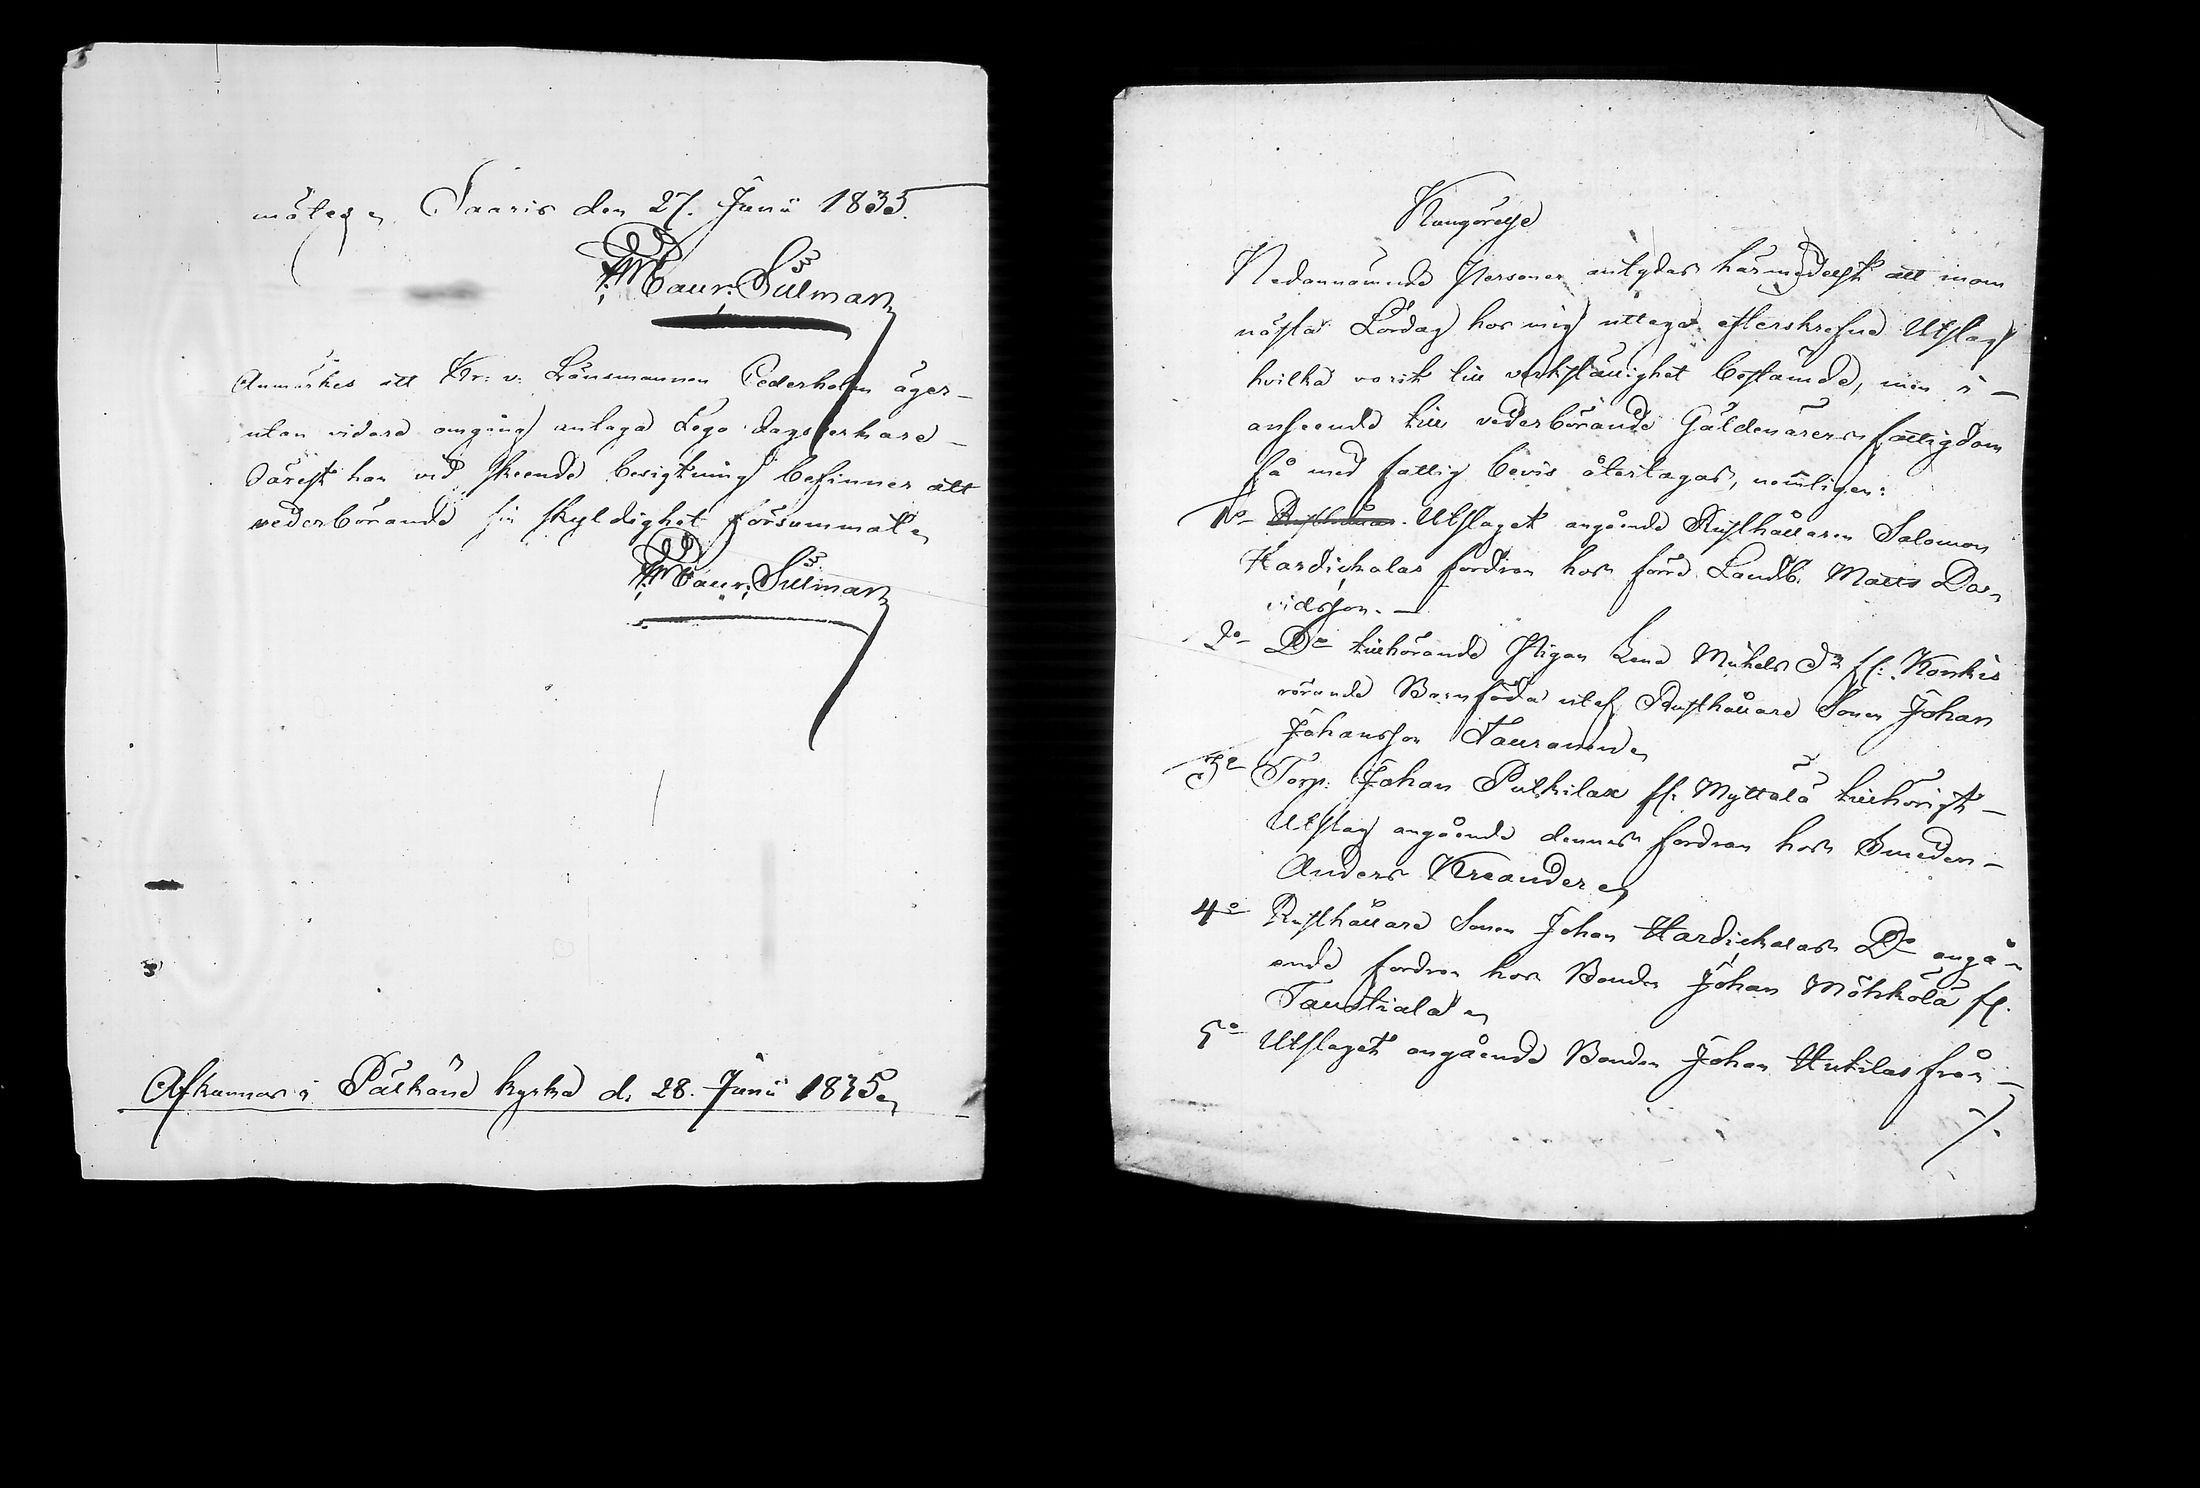 måles. Saaris den 27. Junii 1835.
Maur: Silman
Anmärkes att Kr: v: Länsmannen Cederholm äger
utan vidare omgång antaga Lego dagsverkare
därest han vid skeende besigtning befinner att
vederbörande sin skyldighet försummat.
Maur: Silman
Afkunnas i Pälkäne kyrka d. 28. Junii 1835.
Kungörelse
Nedannämnde Personer antydas härmedelst att inom
nästa Lördag hos mig uttaga efterskrefne Utslag
hvilka varit till verkställighet bestämde, men i
anseende till vederbörande Gäldenärers fattigdom
få med fattig bevis återtagas, nemligen:
1o Utslaget angående Rusthållaren Salomon
Hardickalas fordran hos förre Landb. Matts Da-
vidsson.
2o Do tillhörande Pigan Lena Michels dr fr: Konkis
rörande Barnföda utaf Rusthållare Sonen Johan
Johansson
3o Torp: Johan Pulkilax fr: Myttälä tillhörigt
Utslag angående dennes fordran hos Smeden
Anders Kreander
4o Rusthållare Sonen Johan Hardickalas Do angå-
ende fordran hos Bonden Johan Möhkölä fr.
Taustiala
5o Utslaget angående Bonden Johan Hukilas från